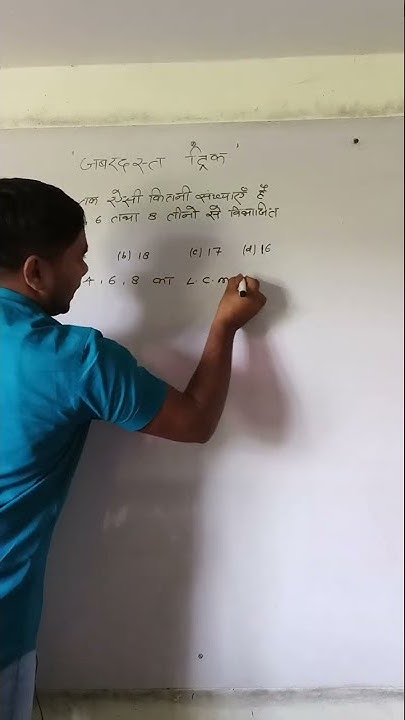 'जबरदस्त ट्रिक'
तक ऐसी कितनी संख्याएँ हैं
6 तथा 8 तीनो से विभाजित
(b) 18 (c) 17 (d) 16
4, 6, 8 का L.C.M